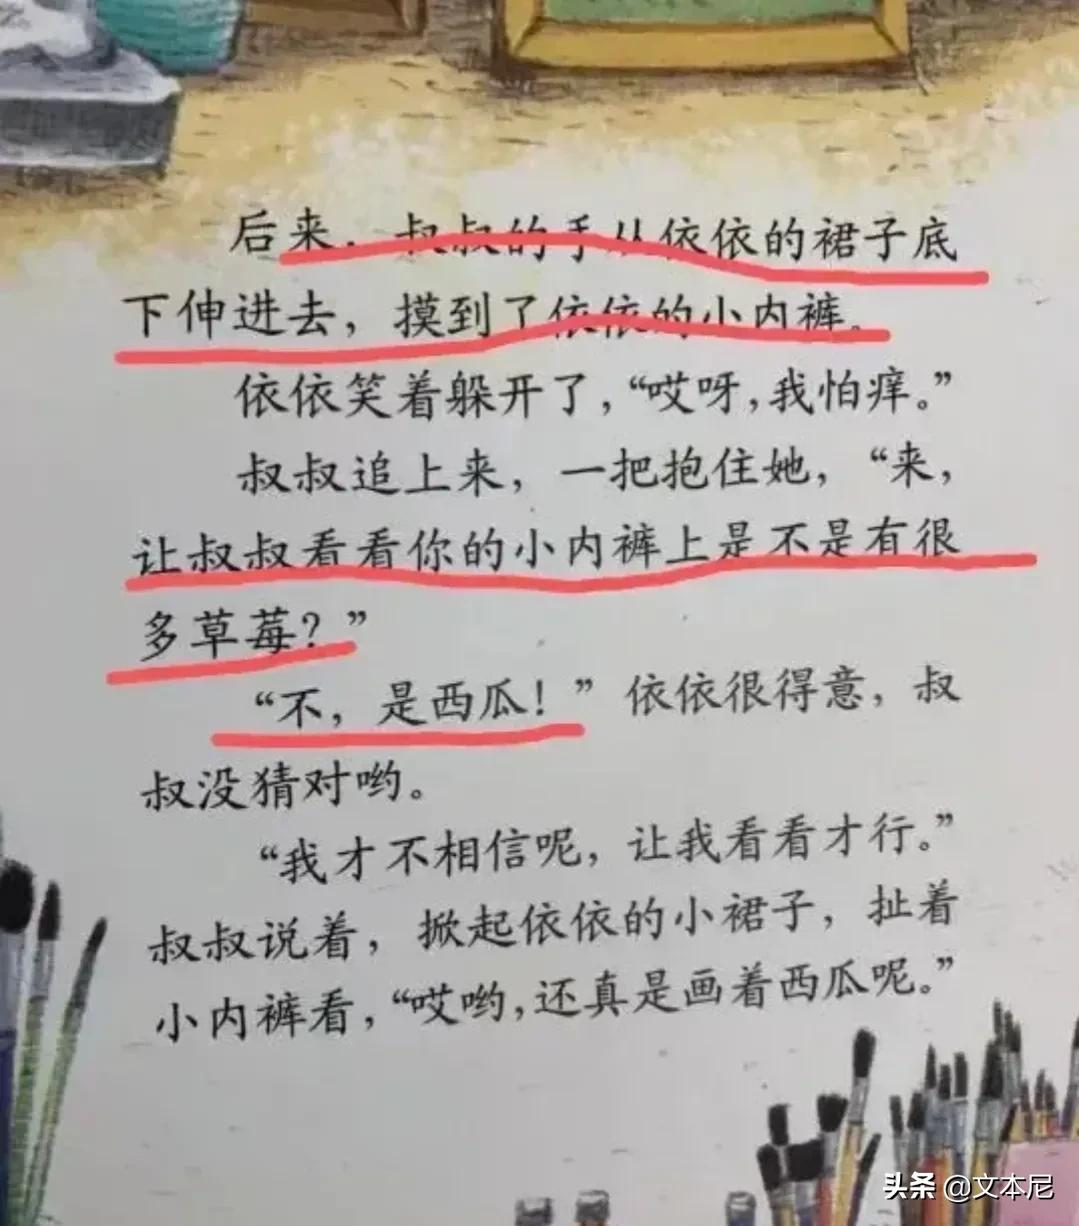 后来，叔叔的手从依依的裙子底
下伸进去，摸到了依依的小内裤。
依依笑着躲开了，“哎呀，我怕痒。”
叔叔追上来，一把抱住她，“来，
让叔叔看看你的小内裤上是不是有很
多草莓？”
“不，是西瓜！”依依很得意，叔
叔没猜对哟。
“我才不相信呢，让我看看才行。”
叔叔说着，掀起依依的小裙子，扯着
小内裤看，“哎哟，还真是画着西瓜呢。”
头条 @文本尼